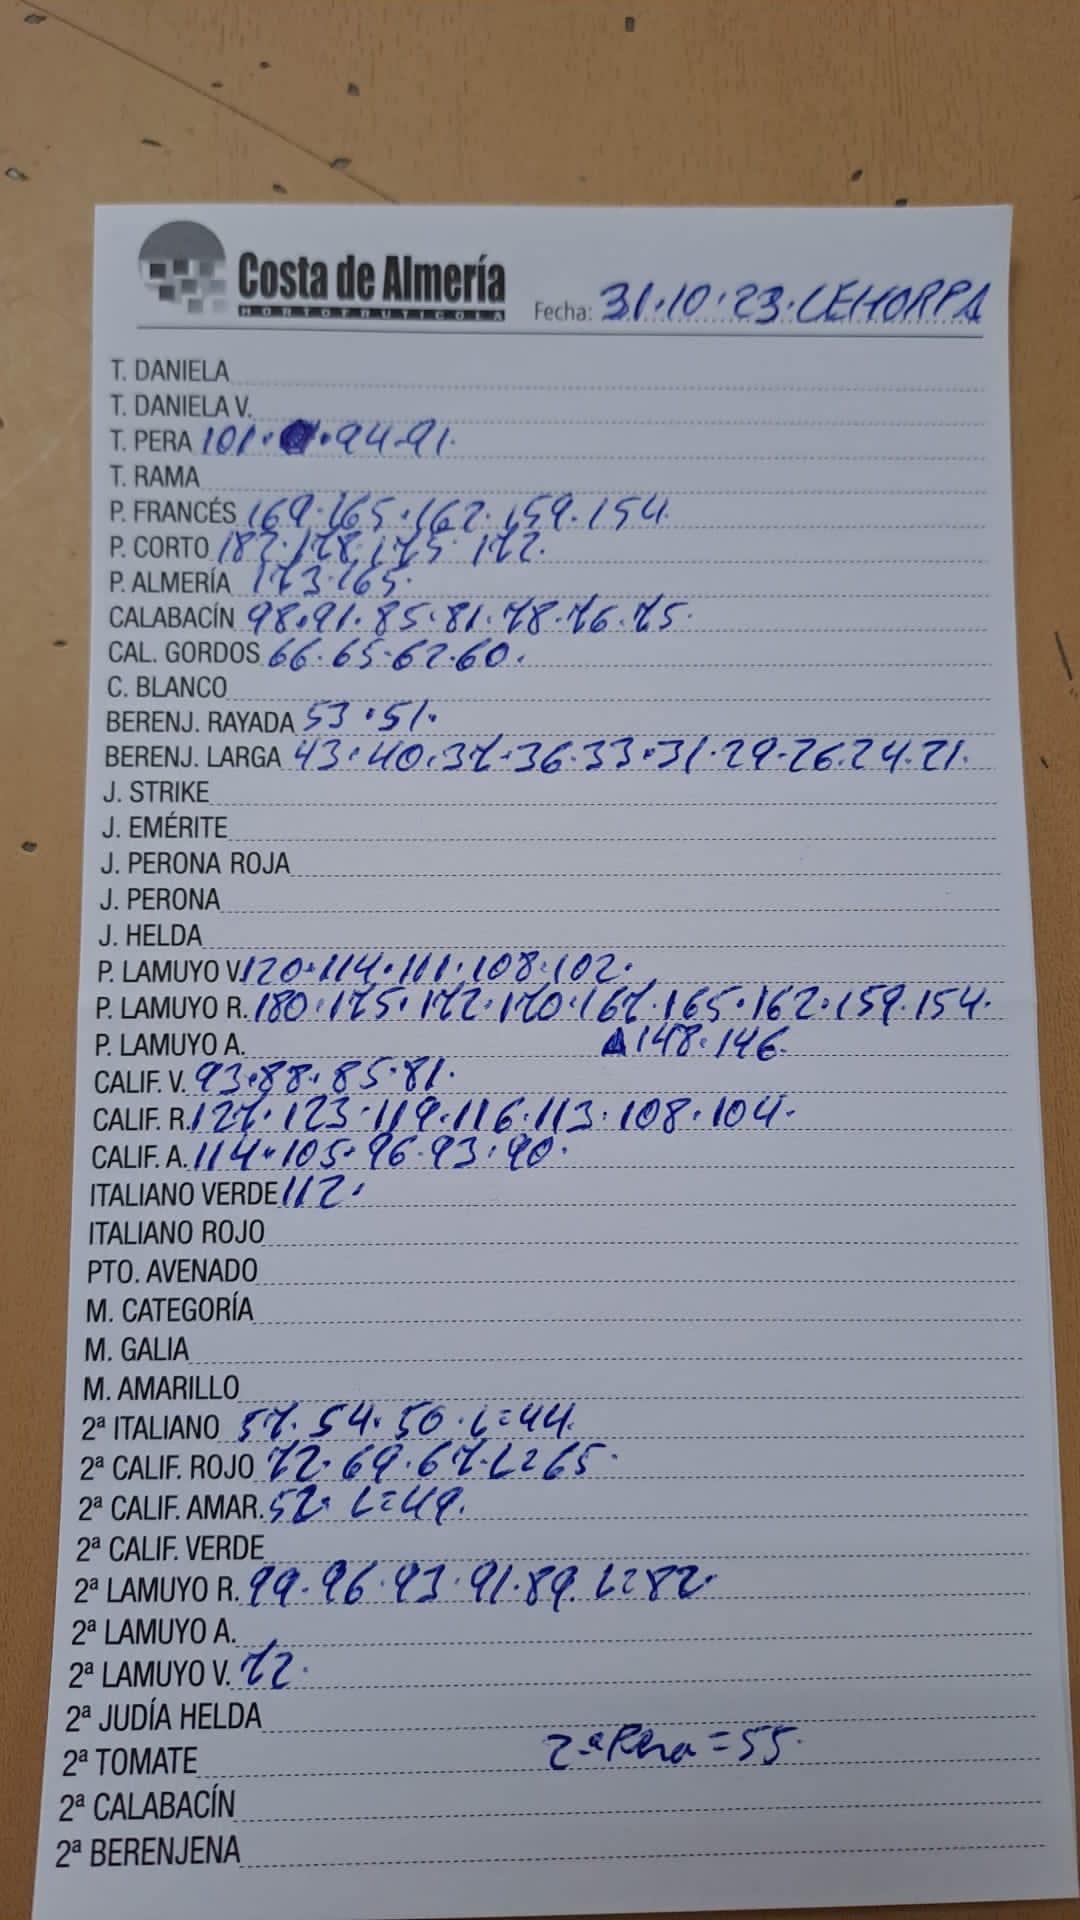 Costa de Almería
HORTOFRUTICOLA
Fecha: 31·10·23·CEHORPA
T. DANIELA
T. DANIELA V.
T. PERA 101· ·94·91·
T. RAMA
P. FRANCÉS 169·165·162·159·154
P. CORTO 182·178·175·172·
P. ALMERÍA 173·165·
CALABACÍN 98·91·85·81·78·76·75·
CAL. GORDOS 66·65·62·60·
C. BLANCO
BERENJ. RAYADA 53·51·
BERENJ. LARGA 43·40·37·36·33·31·29·26·24·21·
J. STRIKE
J. EMÉRITE
J. PERONA ROJA
J. PERONA
J. HELDA
P. LAMUYO V. 120·114·111·108·102·
P. LAMUYO R. 180·175·172·170·167·165·162·159·154·
P. LAMUYO A. 148·146·
CALIF. V. 93·88·85·81·
CALIF. R. 127·123·119·116·113·108·104·
CALIF. A. 114·105·96·93·90·
ITALIANO VERDE 112·
ITALIANO ROJO
PTO. AVENADO
M. CATEGORÍA
M. GALIA
M. AMARILLO
2ª ITALIANO 57·54·50·L=44
2ª CALIF. ROJO 72·69·67·L=65·
2ª CALIF. AMAR. 52· L=49·
2ª CALIF. VERDE
2ª LAMUYO R. 99·96·93·91·89·L=82·
2ª LAMUYO A.
2ª LAMUYO V. 72·
2ª JUDÍA HELDA
2ª TOMATE 2ª Pera=55·
2ª CALABACÍN
2ª BERENJENA